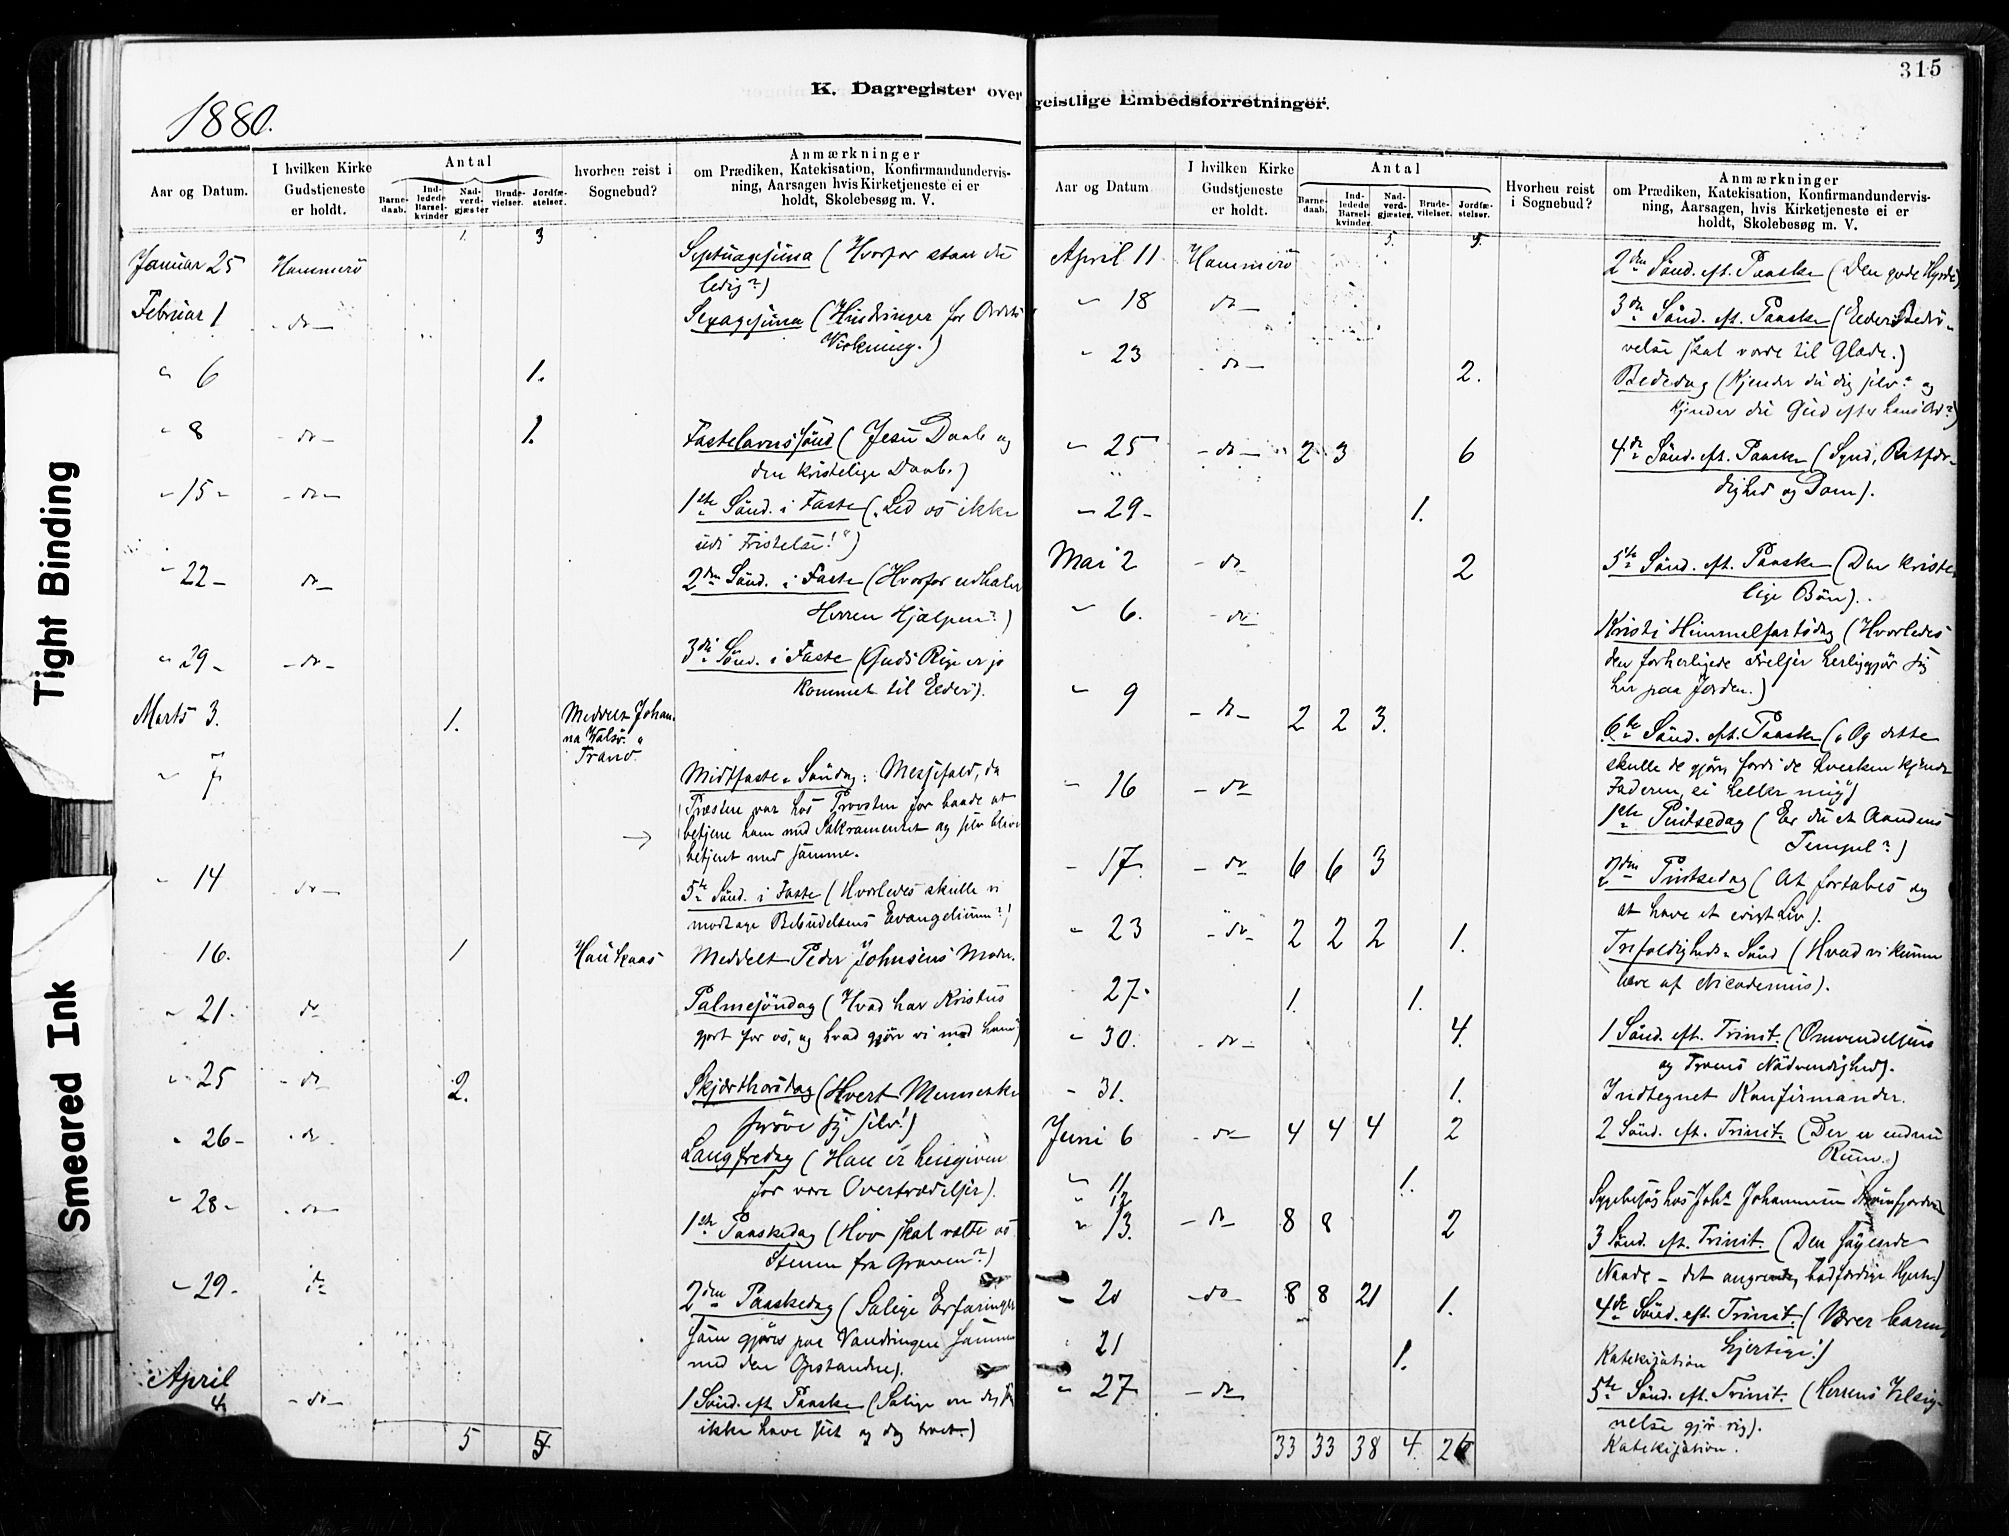 315
K. Dagregister over geistlige Embedsforretninger.
1880.
Aar og Datum.
I hvilken Kirke Gudstjeneste er holdt.
Antal
Barne-daab.
Ind-ledede Barsel-kvinder
Nad-verd-gjæster
Brude-vielser.
Jordfæ-stelser.
hvorhen reist i Sognebud?
Anmærkninger
om Prædiken, Katekisation, Konfirmandundervis-
ning, Aarsagen hvis Kirketjeneste ei er
holdt, Skolebesøg m. V.
1. 3
Januar 25 Hammerö Septuagesima (Hvorfor staar du
ledig?)
Februar 1 - do - Sexagesima (Hindringer for Ordets
Virkning.)
" 6 1.
" 8 - do - 1. Fastelavnssönd (Jesu Daab og
den kristelige Daab.)
" 15 - - do - 1ste Sönd. i Faste („Led os ikke
udi Fristelse!")
" 22 - do - 2den Sönd. i Faste (Hvorfor udhaler
Herren Hjælpen?)
" 29 - - do - 3die Sönd. i Faste (Guds Rige er jo
kommet til Eder).
Marts 3. 1. Meddelt Johan-
na Valsö.
Trano.
" 7 Midtfaste Söndag: Messefald, da
Præsten var hos Provsten for baade at
betjene ham med Sakramentet og selv blive
betjent med samme.
" 14 - do - 5te Sönd. i Faste (Hvorledes skulle vi
modtage Bebudelsens Evangelium?)
" 16. 1 Haukaas Meddelt Peder Johnsens Moder.
" 21. do Palmesöndag (Hvad har Kristus
gjort for os, og hvad gjöre vi med ham)
" 25 - do 2. Skjærthorsdag (Hvert Menneske
pröve sig selv!)
" 26 - - do - Langfredag (Han er hengiven
for vore Overtrædelser).
" 28 - - do - 1ste Paaskedag (Hvo skal vælte os
Stenen fra Graven?)
" 29 - do 2den Paaskedag (Salige Erfaringer
som gjöres paa Vandringen sammen
med den Opstandne).
April
4 - do - 1 Sönd. eft. Paaske (Salige ere de, som
ikke have seet og dog troet.)
5 5
Aar og Datum
I hvilken Kirke Gudstjeneste er holdt.
Antal
Barne-daab.
Ind-ledede Barsel-kvinder
Nad-verd-gjæster.
Brude-vilelser.
Jordfæ-stelser.
Hvorheu reist i Sognebud?
Anmærkninger
om Prædiken, Katekisation, Konfirmandundervis-
ning, Aarsagen, hvis Kirketjeneste ei er
holdt, Skolebesøg m. V.
5. 5.
April 11 Hammerö 2den Sönd. eft. Paaske (Den gode Hyrde)
" 18 do - 3die Sönd. eft. Paaske (Eders Bedrö-
velse skal vorde til Glæde.)
" 23 - do - 2. Bededag (Kjender du dig selv? og
kjender du Gud efter hans Ord?)
" 25 - do - 2 3 6 4de Sönd. eft. Paaske (Synd, Retfær-
dighed og Dom).
" 29 - 1.
Mai 2 - do 2 5te Sönd. eft. Paaske (Den kriste-
lige Bön).
" 6. - do - Kristi Himmelfartsdag (Hvorledes
den forherligede Frelser herliggjör sig
her paa Jorden.)
" 9 - do - 2 2 3. 6te Sönd. eft. Paaske („Og dette
skulle de gjöre, fordi de hverken kjende
Faderen, ei heller mig")
" 16 - do 1ste Pintsedag (Er du et Aandens
Tempel?)
" 17. - do 6 6 3 2den Pintsedag (At fortabes og
at have et evigt Liv).
" 23 - do - 2 2 2 1. Trefoldigheds Sönd (Hvad vi kunne
lære af Nicodemus).
27. 1. 1.
" 30. - do - 4. 1 Sönd. eft. Trinit. (Omvendelsens
og Troens Nödvendighed).
" 31. 1. Indtegnet Konfirmander.
Juni 6 - do 4 4 4 2 2 Sönd. eft. Trinit. (Der er endnu
Rum.)
" 11 1.
" 12 Sygebesög hos Johs Johannesen
" 13. - do 8 8 2 3 Sönd. eft. Trinit. (Den sögende
Naade - det angrende, bodfærdige Hjerte)
" 20 - do - 8 8 21 1. 4de Sönd. eft. Trinit. (Værer barm-
hjertige!)
21 1. Katekisation
" 27 - do 5te Sönd. eft. Trinit. (Herrens Velsig-
nelse gjör rig).
Katekisation.
33 33 38 4. 26
Tight Binding
Smeared Ink